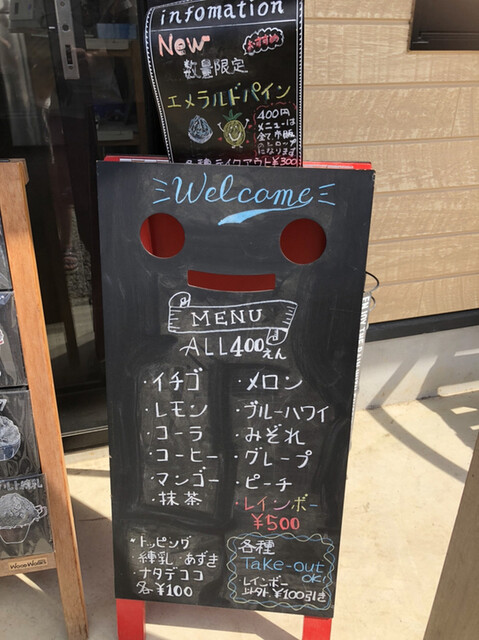 infomation
New
おすすめ
数量限定
エメラルドパイン
400円
メニューは
全て市販
のシロップ
になります
各種テイクアウト¥300
Welcome
MENU
ALL400えん
・イチゴ
・レモン
・コーラ
・コーヒー
・マンゴー
・抹茶
・メロン
・ブルーハワイ
・みぞれ
・グレープ
・ピーチ
・レインボー
¥500
・トッピング
練乳・あずき
ナタデココ
各¥100
各種
Take-out
OK!
レインボー
以外 ¥100引き